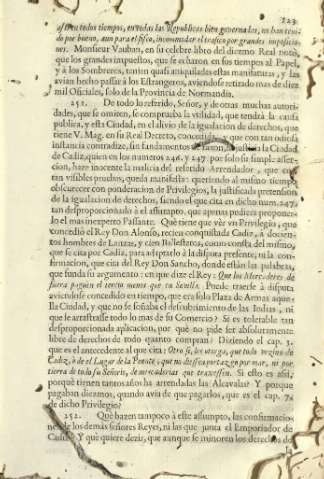 223
assi en todos tiempos, en todas las Republicas bien governadas, no han teni-
do por bueno, aun para el fisco, incomodar el trafico por grandes imposicio-
nes. Monsieur Vauban, en su celebre libro del diezmo Real notò,
que los grandes impuestos, que se echaron en sus tiempos al Papel,
y à los Sombreros, tenian quasi aniquiladas estas manifaturas, y las
avian hecho passar à los Estrangeros, aviendose retirado mas de diez
mil Oficiales, solo de la Provincia de Normandia.
251. De todo lo referido, Señor, y de otras muchas autorida-
des, que se omiten, se comprueba la utilidad, que tendrà la causa
publica, y esta Ciudad, en el alivio de la igualacion de derechos, que
tiene V. Mag. en su Real Decreto, concedida, y que con tan odiosa
instancia contradize, sin fundamentos de razon, justicia la Ciudad
de Cadiz, quien en los numeros 246. y 247. por solo su simple asser-
cion, haze inocente la malicia del referido Arrendador, que con
tan visibles pruebas, queda manifiesta: queriendo al mismo tiempo
obscurecer con ponderacion de Privilegios, la justificada pretension
de la igualacion de derechos, siendo el que cita en dicho num. 247.
tan desproporcionado à el assumpto, que apenas pudiera proponer-
lo el mas inexperto Passante. Què tiene que vèr un Privilegio, que
concediò el Rey Don Alonso, recien conquistada Cadiz, à docien-
tos hombres de Lanzas, y cien Ballesteros, como consta del mismo,
que se cita por Cadiz, para adaptarlo à la disputa presente, ni la con-
firmacion, que cita del Rey Don Sancho, donde estàn las palabras,
que funda su argumento: en que dize el Rey: Que los Mercaderes de
fuera paguen el tercio menos que en Sevilla. Puede traerse à disputa
aviendose concedido en tiempo, que era solo Plaza de Armas aque-
lla Ciudad, y que no se soñaba el descubrimiento de las Indias, ni
que le arrastrasse todo lo mas de su Comercio? Si es tolerable tan
desproporcionada aplicacion, por què no pide ser absolutamente
libre de derechos de todo quanto compran? Diziendo el cap. 3.
que es el antecedente al que cita: Otro si, les otorgo, que todo vezino de
Cadiz, è de el Lugar de la Puente, que no dè portazgo por mar, ni por
tierra de todo su Señorio, de mercadurias que traxessen. Si esto es assi,
porquè tienen tantos años ha arrendadas las Alcavalas? Y porque
pagaban diezmos, quando avia de que pagarlos, que es el cap. 7.
de dicho Privilegio?
252. Què hazen tampoco à este assumpto, las confirmacio-
nes de los demàs señores Reyes, ni las que junta el Emporiador de
Cadiz? Y què quiere dezir, que aunque se minoren los derechos de